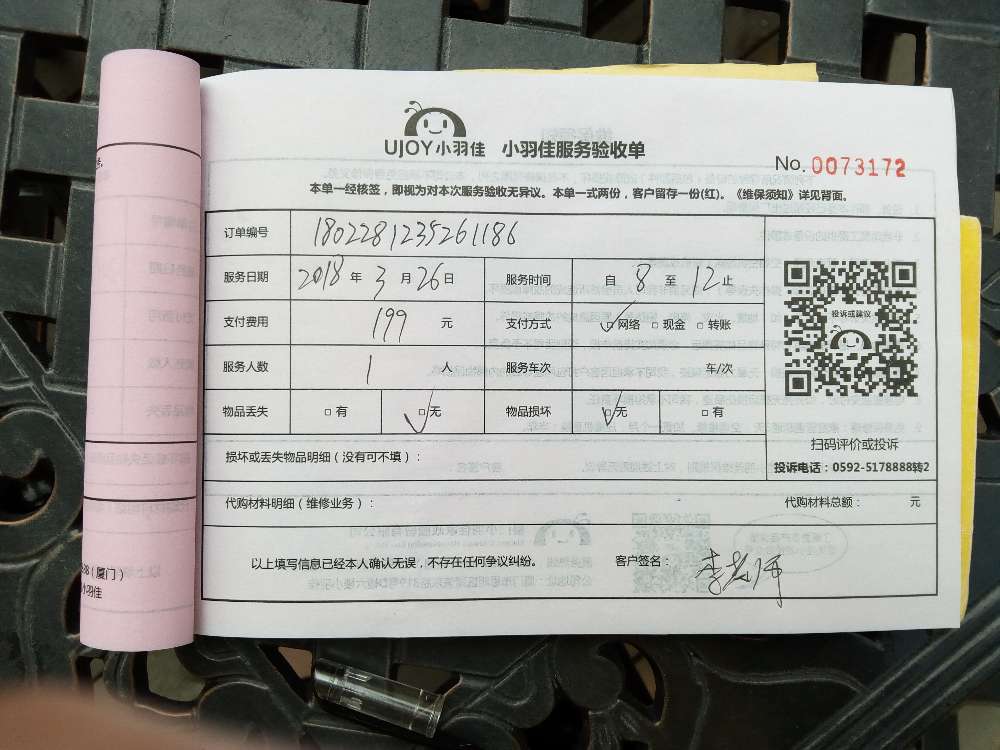 UJOY小羽佳 小羽佳服务验收单
No. 0073172
本单一经核签，即视为对本次服务验收无异议。本单一式两份，客户留存一份(红)。《维保须知》详见背面。
订单编号 1802281235261186
服务日期 2018 年 3 月 26 日 服务时间 自 8 至 12 止
支付费用 199 元 支付方式 ☑网络 □现金 □转账
服务人数 1 人 服务车次 车/次
物品丢失 □有 ☑无 物品损坏 ☑无 □有
投诉或建议
扫码评价或投诉
投诉电话：0592-5178888转2
损坏或丢失物品明细（没有可不填）：
代购材料明细（维修业务）： 代购材料总额： 元
以上填写信息已经本人确认无误，不存在任何争议纠纷。 客户签名： 李老师
（厦门）
小羽佳